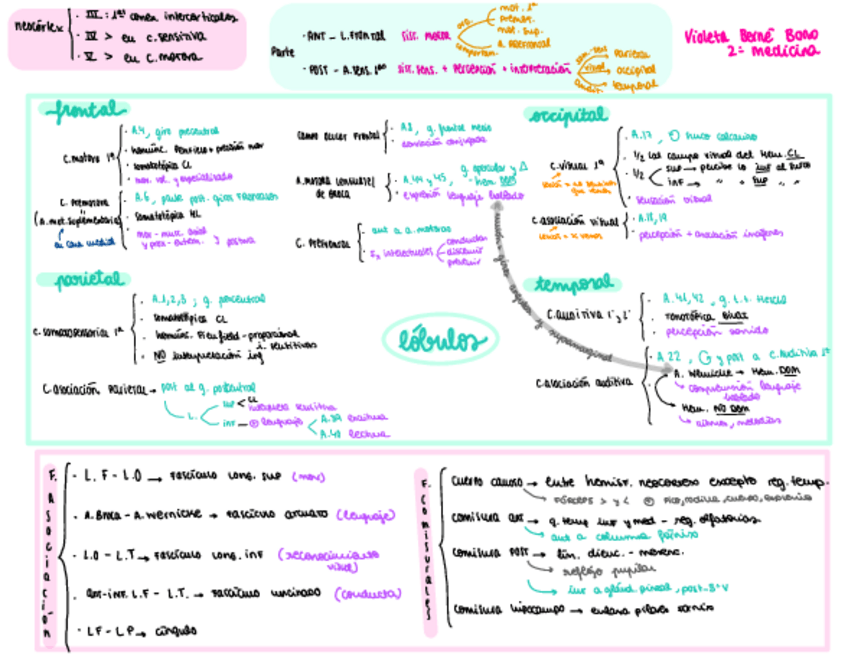 neocórtex
· III: 1ªs conex intercorticales
· IV > en c. sensitiva
· V > en c. motora
Parte
· ANT – L. Frontal sist. motor
mot. 1ª
premot.
mot. sup.
comportam.
· POST – A. sens. 1ªs sist. sens. + Percepción + interpretación
parietal
visual occipital
audit. temporal
Violeta Berné Bono
2º medicina
frontal
c. motora 1ª
· A.4, giro precentral
· somatotópica CL
· mov. vol. y especializado
c. Premotora
(A. mot. suplementaria)
cara medial
· A.6, parte post. giros frontales
· Somatotópica
Campo ocular frontal
· A.8, g. frontal medio
· desviación conjugada
A. motora lenguaje
de Broca
· A. 44 y 45, g. opercular y Δ
- hem. DOM
· expresión lenguaje hablado
C. Prefrontal
· ant a a. motoras
· Fx intelectuales
conducta
discernir
prevenir
occipital
c. visual 1ª
· A.17, surco calcarino
· 1/2 campo visual del hem. CL
· 1/2
sup → percibe lo inf al surco
inf → " sup " "
· sensación visual
c. asociación visual
· A.18, 19
· percepción + asociación imágenes
parietal
c. somatosensorial 1ª
· A. 1, 2, 3; g. postcentral
· somatotópica CL
· homúnc. Penfield - proporcional
i. sensitivos
· NO interpretación inf
c. asociación parietal → post al g. postcentral
L.
sup
inf – lenguaje
A.39 escritura
A.40 lectura
lóbulos
giro angular y supramarginal
temporal
c. auditiva 1ª, 2ª
· A. 41, 42, g. t. t. Heschl
· tonotópica Bilat
· percepción sonido
c. asociación auditiva
· A. 22, y post a c. auditiva 1ª
A. Wernicke → Hem. DOM
comprensión lenguaje
hablado
Hem. NO DOM
ritmos, melodías
F. Asociación
· L.F – L.O → Fascículo long. sup (mov)
· A. Broca – A. Wernicke → fascículo arcuato (lenguaje)
· L.O – L.T → Fascículo long. inf (reconocimiento
visual)
· ant-inf. L.F – L.T. → Fascículo uncinado (conducta)
· LF – LP → cíngulo
F. Comisurales
cuerpo calloso → entre hemisf. neocórtex excepto reg. temp.
Fórceps > y < pico, rodilla, cuerpo, esplenio
comisura ant → g. temp inf y med – reg. olfatorias.
ant a columna fórnix
comisura post → lím. dienc. – mesenc.
reflejo pupilar
inf a glánd. pineal, post. 3ºV
comisura hipocampo → enlaza pilares fórnix